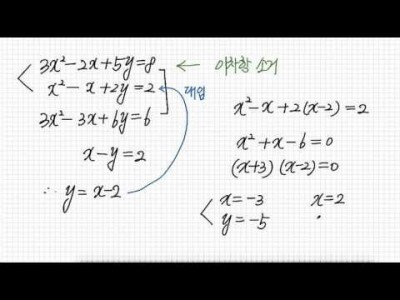 3x²-2x+5y=8 ← 이차항 소거
x²-x+2y=2 대입
3x²-3x+6y=6
x-y=2
∴ y=x-2
x²-x+2(x-2)=2
x²+x-6=0
(x+3)(x-2)=0
x=-3 x=2
y=-5